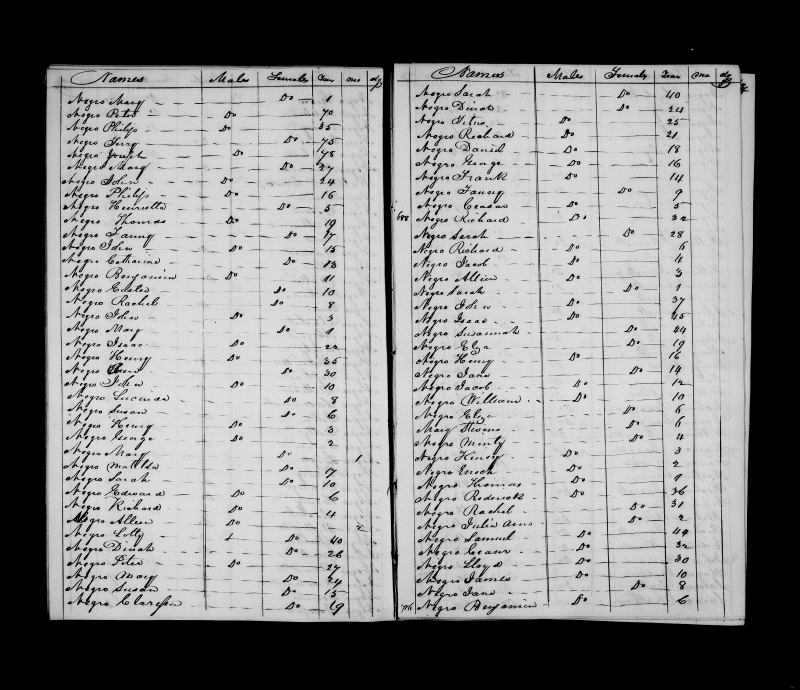 Names Males Females Years mo dys
Negro Mary Do 1
Negro Peter Do 70
Negro Philip Do 35
Negro Do 75
Negro Joseph Do 78
Negro Mary Do 27
Negro John Do 24
Negro Philip Do 16
Negro Henrietta Do 5
Negro Thomas Do 19
Negro Fanny Do 17
Negro John Do 15
Negro Catharine Do 13
Negro Benjamin Do 11
Negro Ester Do 10
Negro Rachel Do 8
Negro John Do 3
Negro Mary Do 1
Negro Isaac Do 22
Negro Henry Do 35
Negro Do 30
Negro John Do 10
Negro Do 8
Negro Susan Do 6
Negro Henry Do 3
Negro George Do 2
Negro Mary Do 1
Negro Matilda Do 7
Negro Sarah Do 10
Negro Edward Do 6
Negro Richard Do 4
Negro Allen Do 2
Negro Letty Do 40
Negro Dinah Do 26
Negro Peter Do 27
Negro Mary Do 24
Negro Susan Do 15
Negro Do 19
Names Males Females Years mo dys
Negro Sarah Do 40
Negro Dinah Do 24
Negro Titus Do 25
Negro Richard Do 21
Negro Daniel Do 18
Negro George Do 16
Negro Frank Do 14
Negro Fanny Do 9
Negro Ceasar Do 5
Negro Richard Do 32
Negro Sarah Do 28
Negro Richard Do 6
Negro Jacob Do 4
Negro Allen Do 3
Negro Sarah Do 1
Negro John Do 37
Negro Isaac Do 45
Negro Susannah Do 44
Negro Eliza Do 19
Negro Henry Do 16
Negro Jane Do 14
Negro Jacob Do 12
Negro William Do 10
Negro Eliza Do 6
Mary Stevens Do 6
Negro Minty Do 4
Negro Henry Do 3
Negro Enoch Do 2
Negro Thomas Do 1
Negro Roderick Do 36
Negro Rachel Do 31
Negro Julia Ann Do 2
Negro Samuel Do 49
Negro Ceasar Do 32
Negro Lloyd Do 30
Negro James Do 10
Negro Jane Do 8
Negro Benjamin Do 6